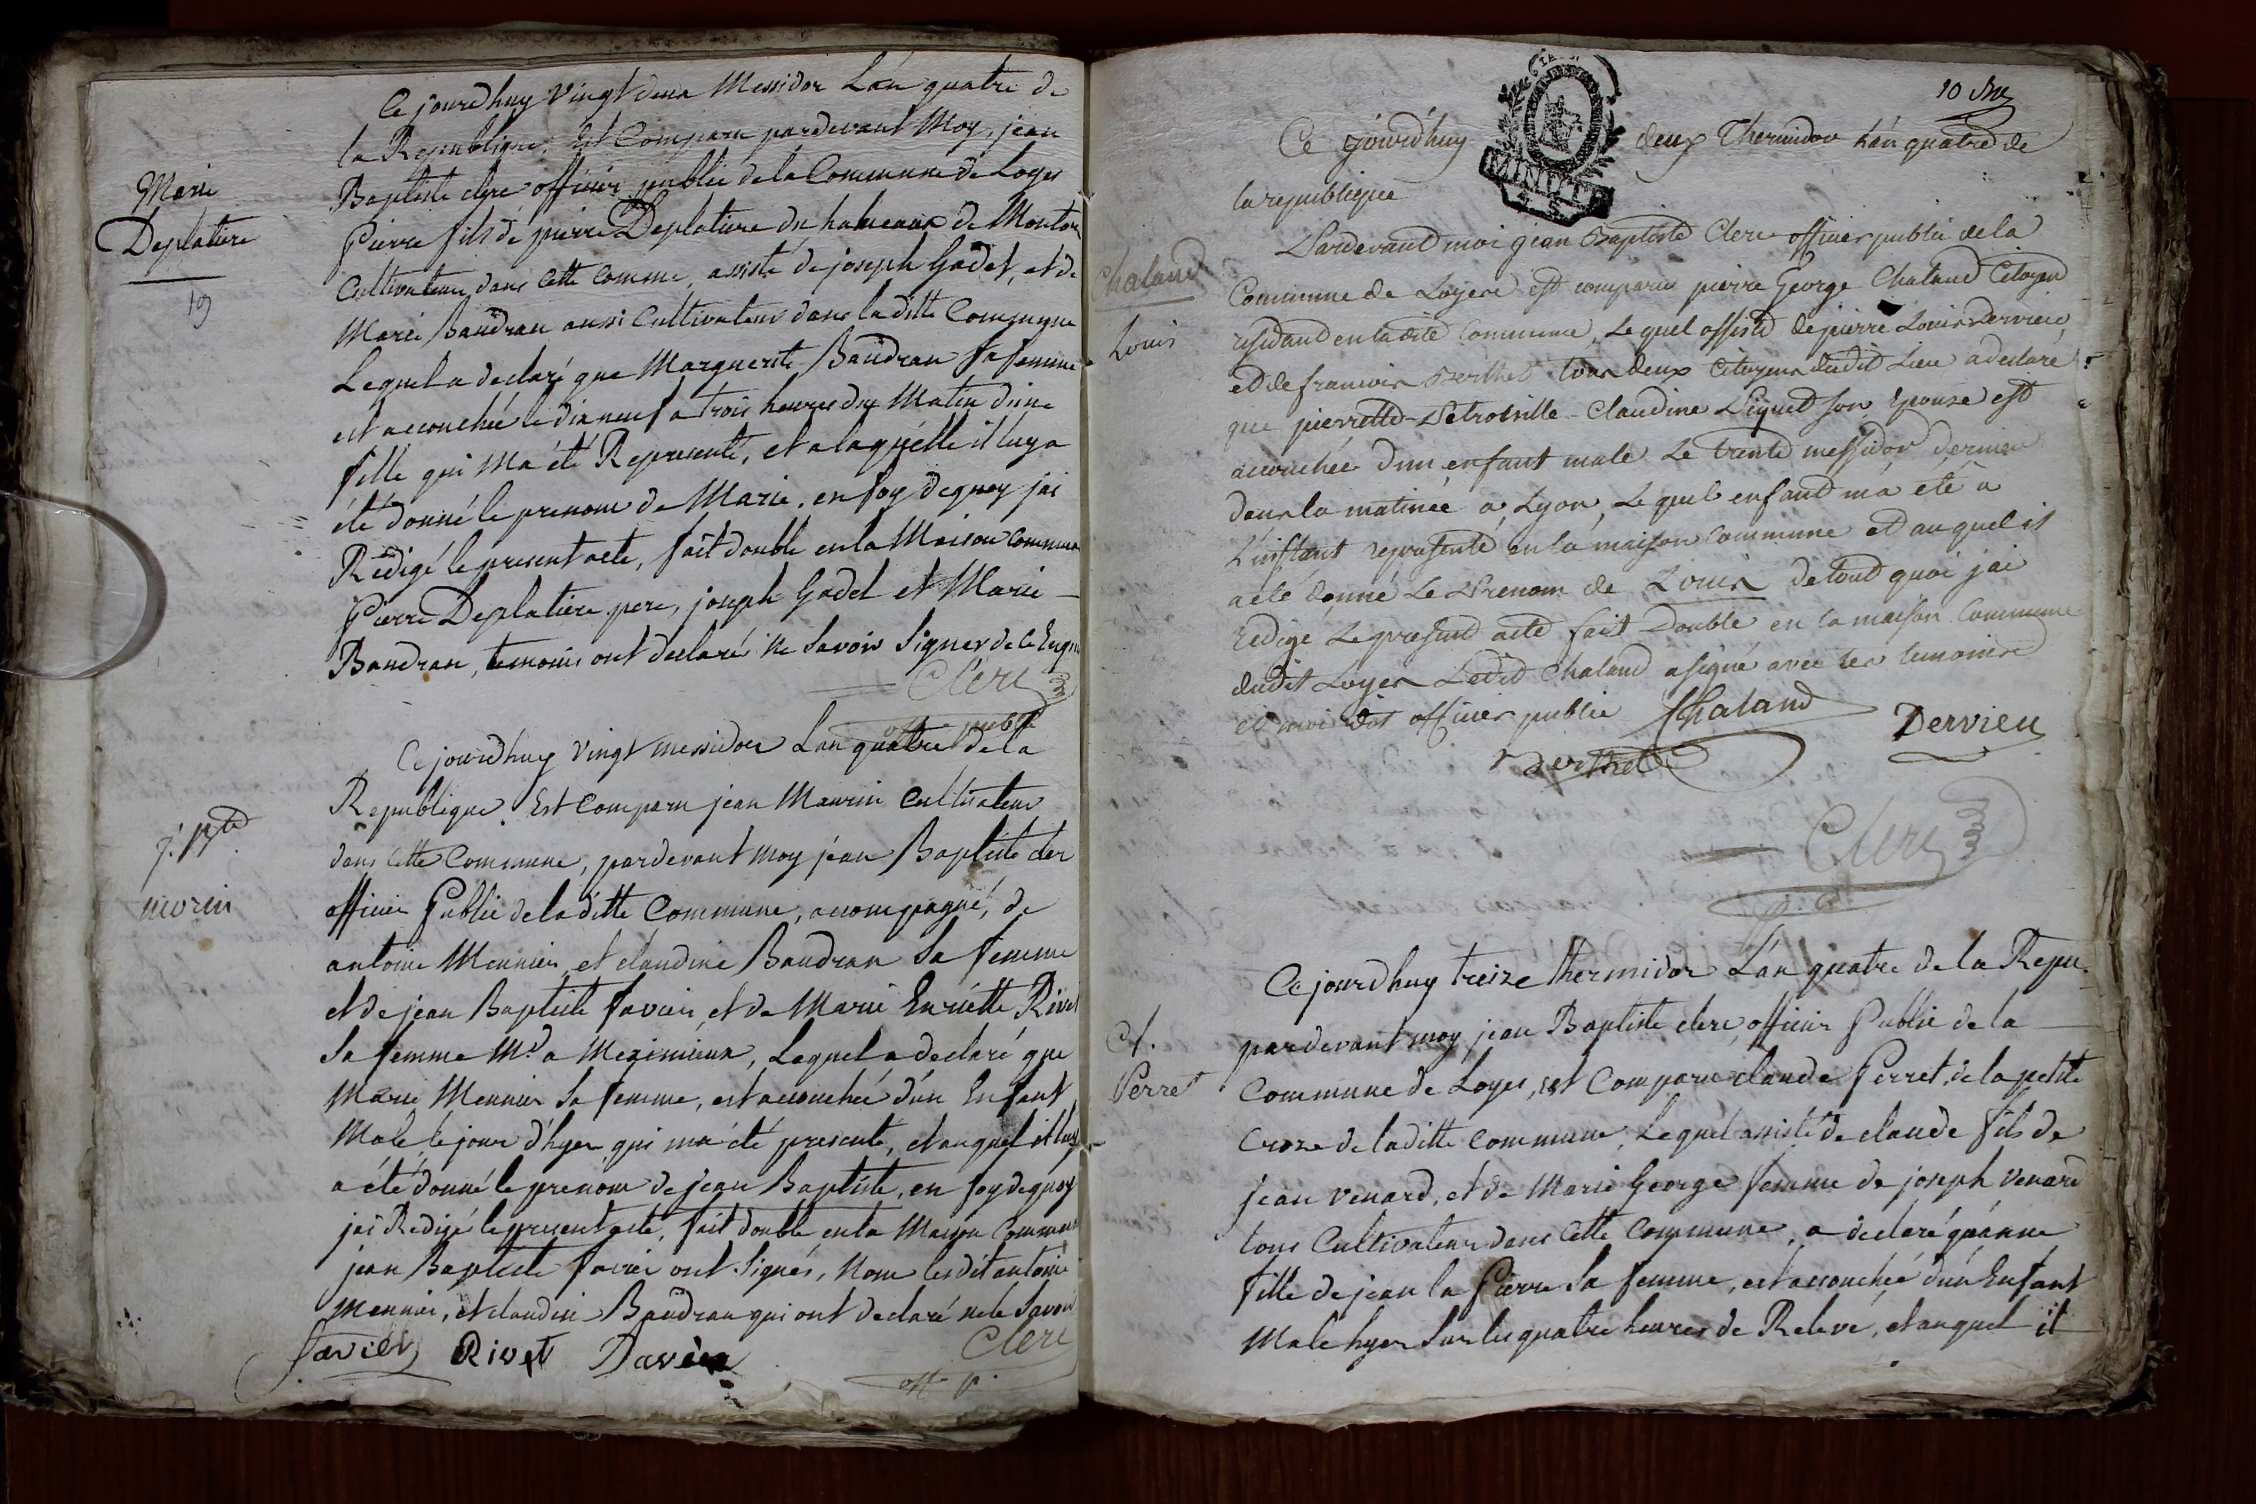 Ce jourdhuy Vingt deux Messidor L'an quatre de
la Republique, Est Comparu pardevant Moy, jean
Baptiste clerc officier public de la Commune de Loyes
Pierre fils de pierre Deplatiere du hameaux de Monton
Cultivateur dans Cette Comme, assisté de joseph Godet, et de
Marie Baudran aussi Cultivateur dans laditte Commune
Lequel a declaré que Marguerite Baudran sa femme
est accouchée le dix neuf a trois heures du Matin d'une
fille qui ma été Representé, et a laquelle il luy a
été donné le prenom de Marie. en foy de quoy jai
Rédigé le present acte, fait double en la Maison commune
Pierre Deplatiere pere, joseph Godet et Marie
Baudran, temoins ont declaré ne Savoir Signer de ce Enquis
Clerc
off. publ.
Marie
Deplatiere
19
Ce jourdhuy vingt messidor L'an quatre de la
Republique Est Comparu jean Maurin Cultivateur
dans Cette Commune, pardevant moy jean Baptiste clerc
officier Public de laditte Commune, accompagné, de
antoine Meunier, et claudine Baudran Sa femme
et de jean Baptiste favier, et de Marie Enriette Rivet
Sa femme Md a Meximieux, Lequel a declaré que
Marie Meunier Sa femme, est accouchée d'un Enfant
Male, le jour d'hyer, qui ma été presenté, et auquel il luy
a été donné le prenom de jean Baptiste, en foy de quoy
jai Redigé le present acte, fait double en la Maison Commune
jean Baptiste favier ont Signés, Non lesdit antoine
Meunier, et claudine Baudran qui ont declaré ne le Savoir
favier Rivet Clerc
off. p.
j. Bte
morin
10 
Ce jourd'huy deux Thermidor L'an quatre de
la republique
MINUTE
Pardevant moi jean Baptiste Clerc officier public de la
Commune de Loyes est comparu pierre George Chaland Citoyen
residant en ladite Commune, Lequel assisté de pierre Louis Dervieu
et de francois Berthet tous deux Citoyens dudit Lieu a declaré
que pierrette Petronille Claudine Piquet son Epouse est
accouchée d'un enfant male Le trente messidor dernier
dans la matinée a Lyon, Le quel enfant m'a été a
L'instant representé en la maison commune et auquel il
a été donné Le Prenom de Louis de tout quoi jai
redigé Le present acte fait Double en la maison Commune
dudit Loyes Ledit Chaland a signé avec les temoins
et moi dit officier public Chaland Dervieu
Berthet
Clerc
o. p.
Chaland
Louis
Ce jourdhuy treize thermidor L'an quatre de la Repu.
pardevant moy jean Baptiste clerc, officier Public de la
Commune de Loyes, est Comparu claude Perret de la petite
Croze de laditte Commune, Lequel assisté de claude fils de
jean venard, et de Marie George femme de joseph venard
tous Cultivateur dans Cette Commune, a declaré qu'anne
fille de jean la Pierre Sa femme, est accouchée d'un Enfant
Male hyer Sur les quatre heures de Relevé, et auquel il
Cl.
Perret